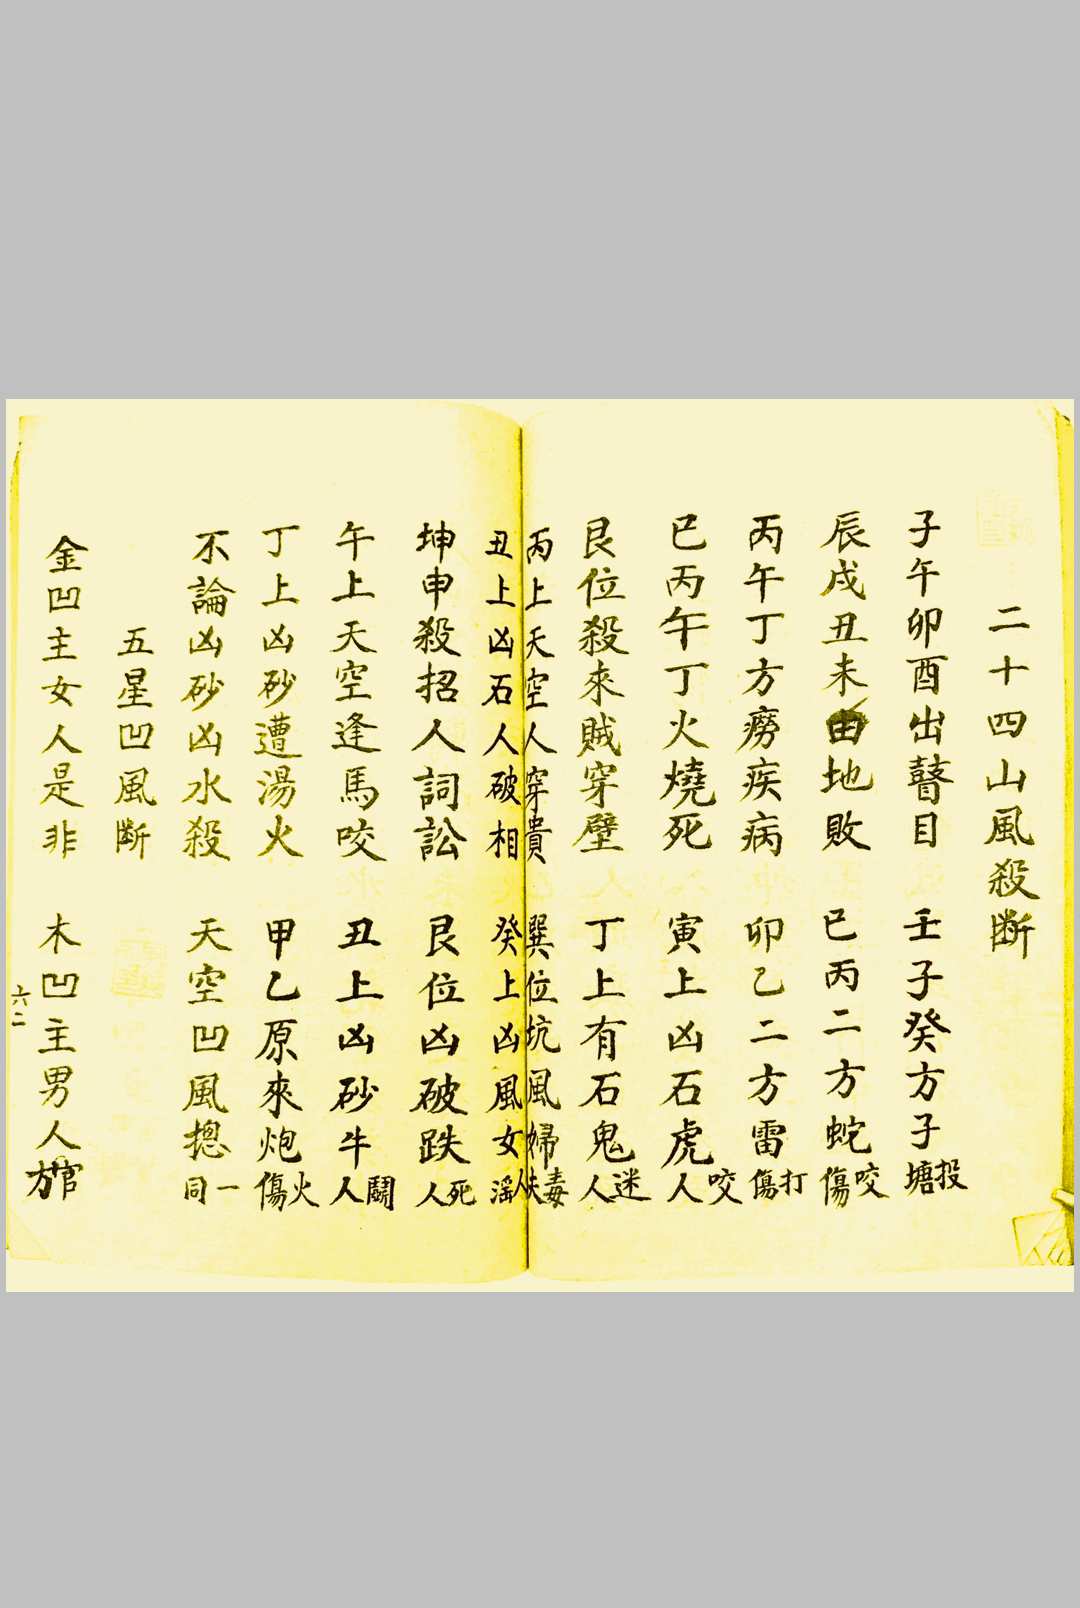 二十四山風殺斷
子午卯酉出瞽目　壬子癸方子投塘
辰戌丑未田地敗　巳丙二方蛇咬傷
丙午丁方癆疾病　卯乙二方雷打傷
巳丙午丁火燒死　寅上凶石虎咬人
艮位殺來賊穿壁　丁上有石鬼迷人
丙上天空人穿貴　巽位坑風婦毒夫
丑上凶石人破相　癸上凶風女人滛
坤申殺招人詞訟　艮位凶破跌死人
午上天空逢馬咬　丑上凶砂牛鬪人
丁上凶砂遭湯火　甲乙原來炮火傷
不論凶砂凶水殺　天空凹風摠一同
五星凹風斷
金凹主女人是非　木凹主男人官方
六二